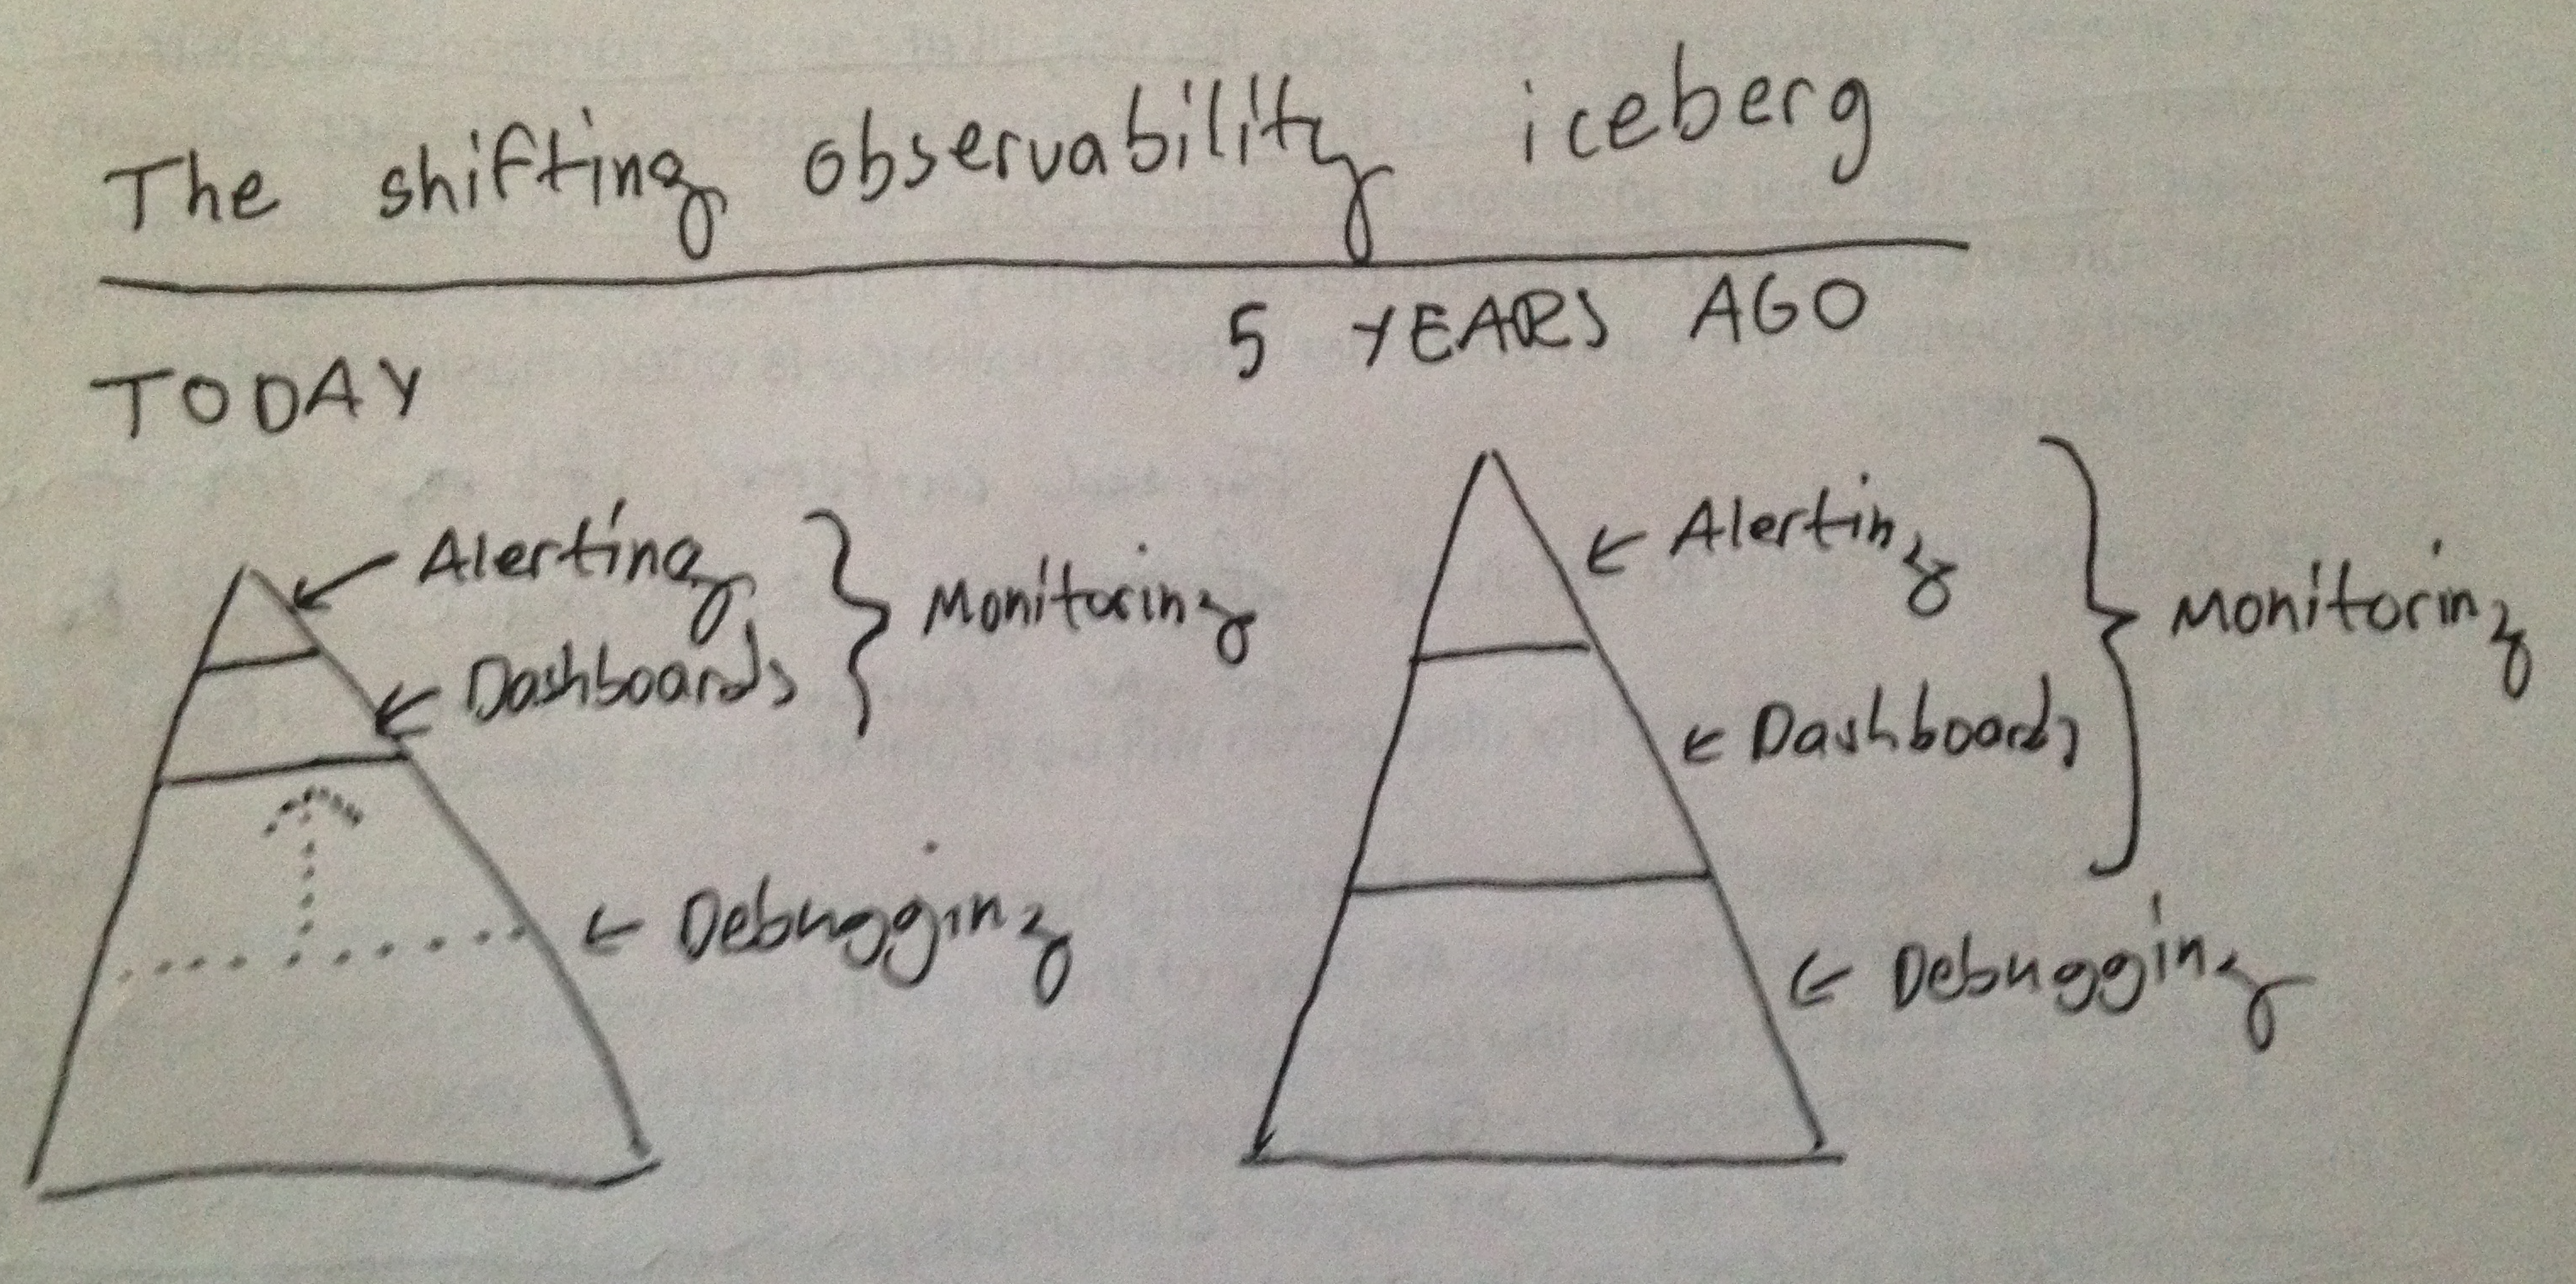 The shifting observability iceberg
TODAY
Alerting
Dashboards
Monitoring
Debugging
5 YEARS AGO
Alerting
Dashboards
Monitoring
Debugging